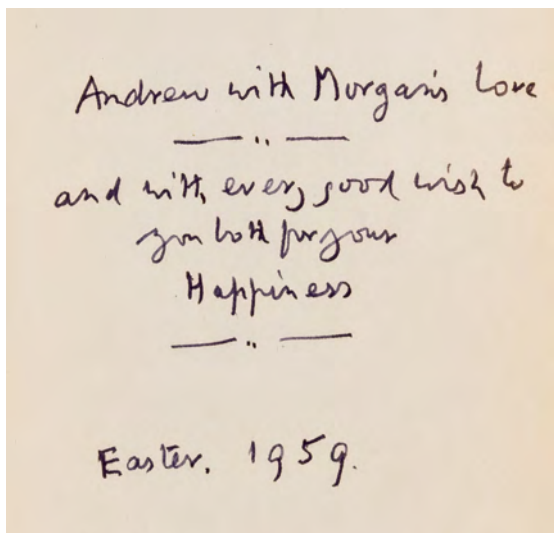 Andrew with Morgan's Love
and with every good wish to
you both for your
Happiness
Easter. 1959.